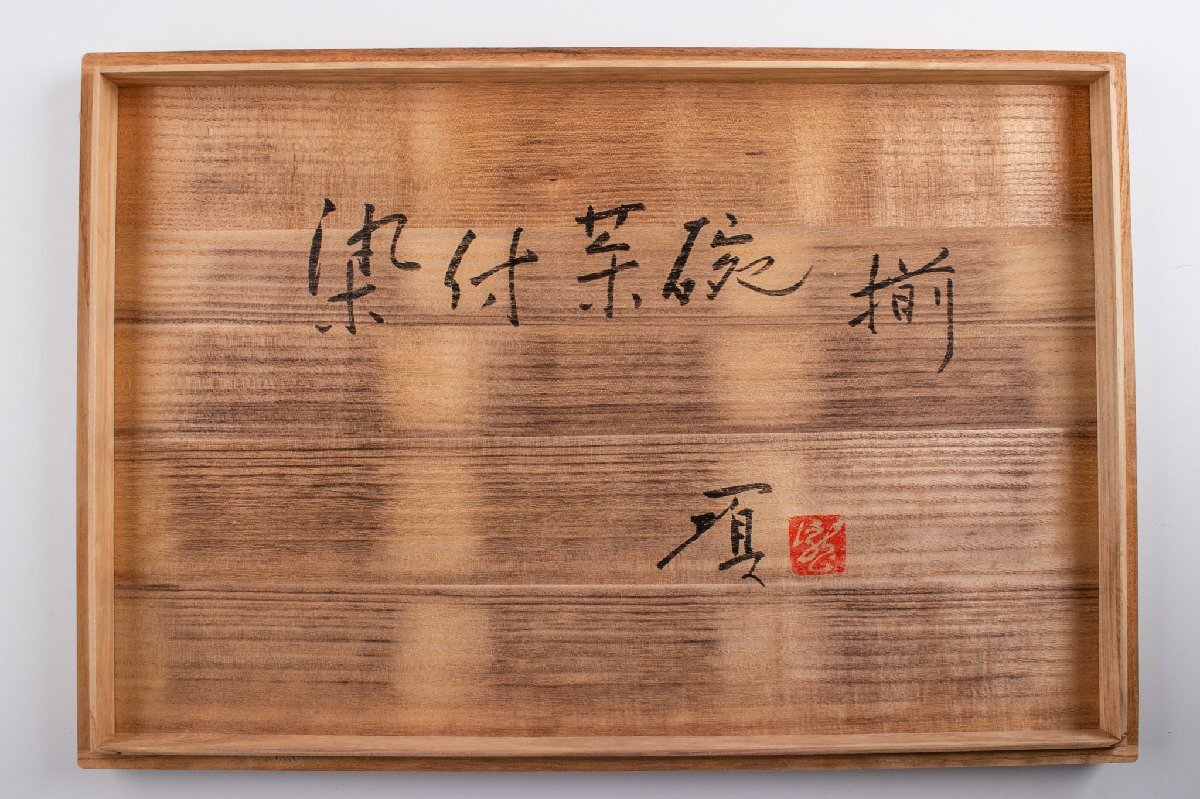 染付茶碗 揃